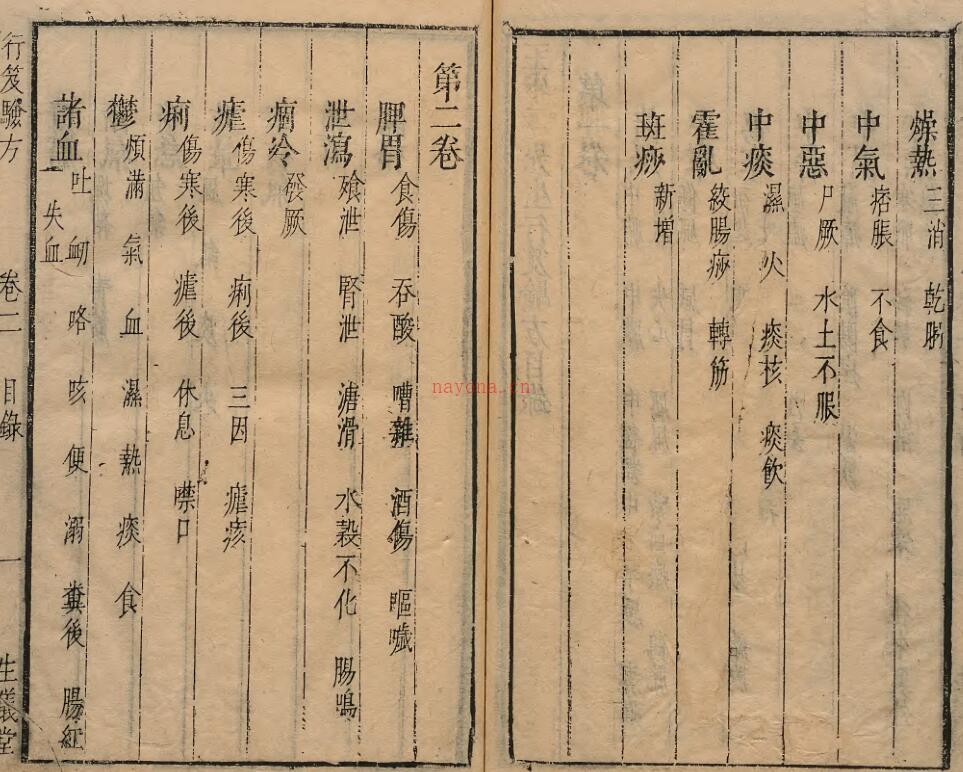 燥熱 三消 乾𦙶
中氣 痞脹 不食
中惡 尸厥 水土不服
中痰 濕 火 痰核 痰飲
霍亂 絞腸痧 轉筋
斑痧 新增
第二卷
脾胃 食傷 吞酸 嘈雜 酒傷 嘔噦
泄瀉 飱泄 腎泄 溏滑 水穀不化 腸鳴
痼冷 發厥
瘧 傷寒後 痢後 三因 瘧痎
痢 傷寒後 瘧後 休息 噤口
鬱 煩滿 氣 血 濕 熱 痰 食
諸血 吐 衂 咯 咳 便 溺 糞後 腸紅
失血
行笈驗方 卷二 目錄 一 生儀堂
nayona.cn